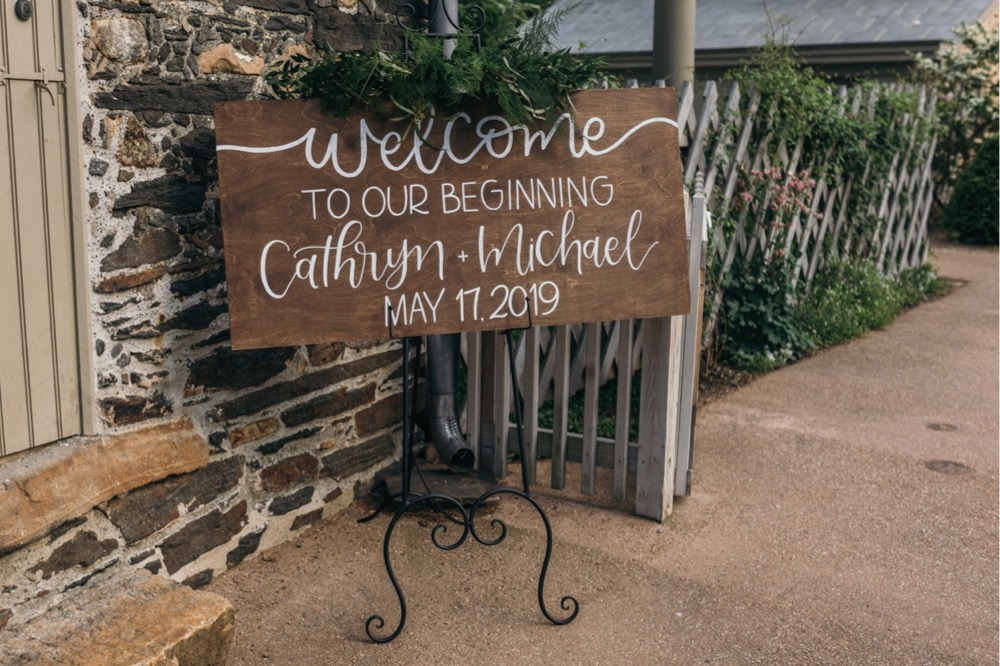 welcome
TO OUR BEGINNING
Cathryn + Michael
MAY 17, 2019